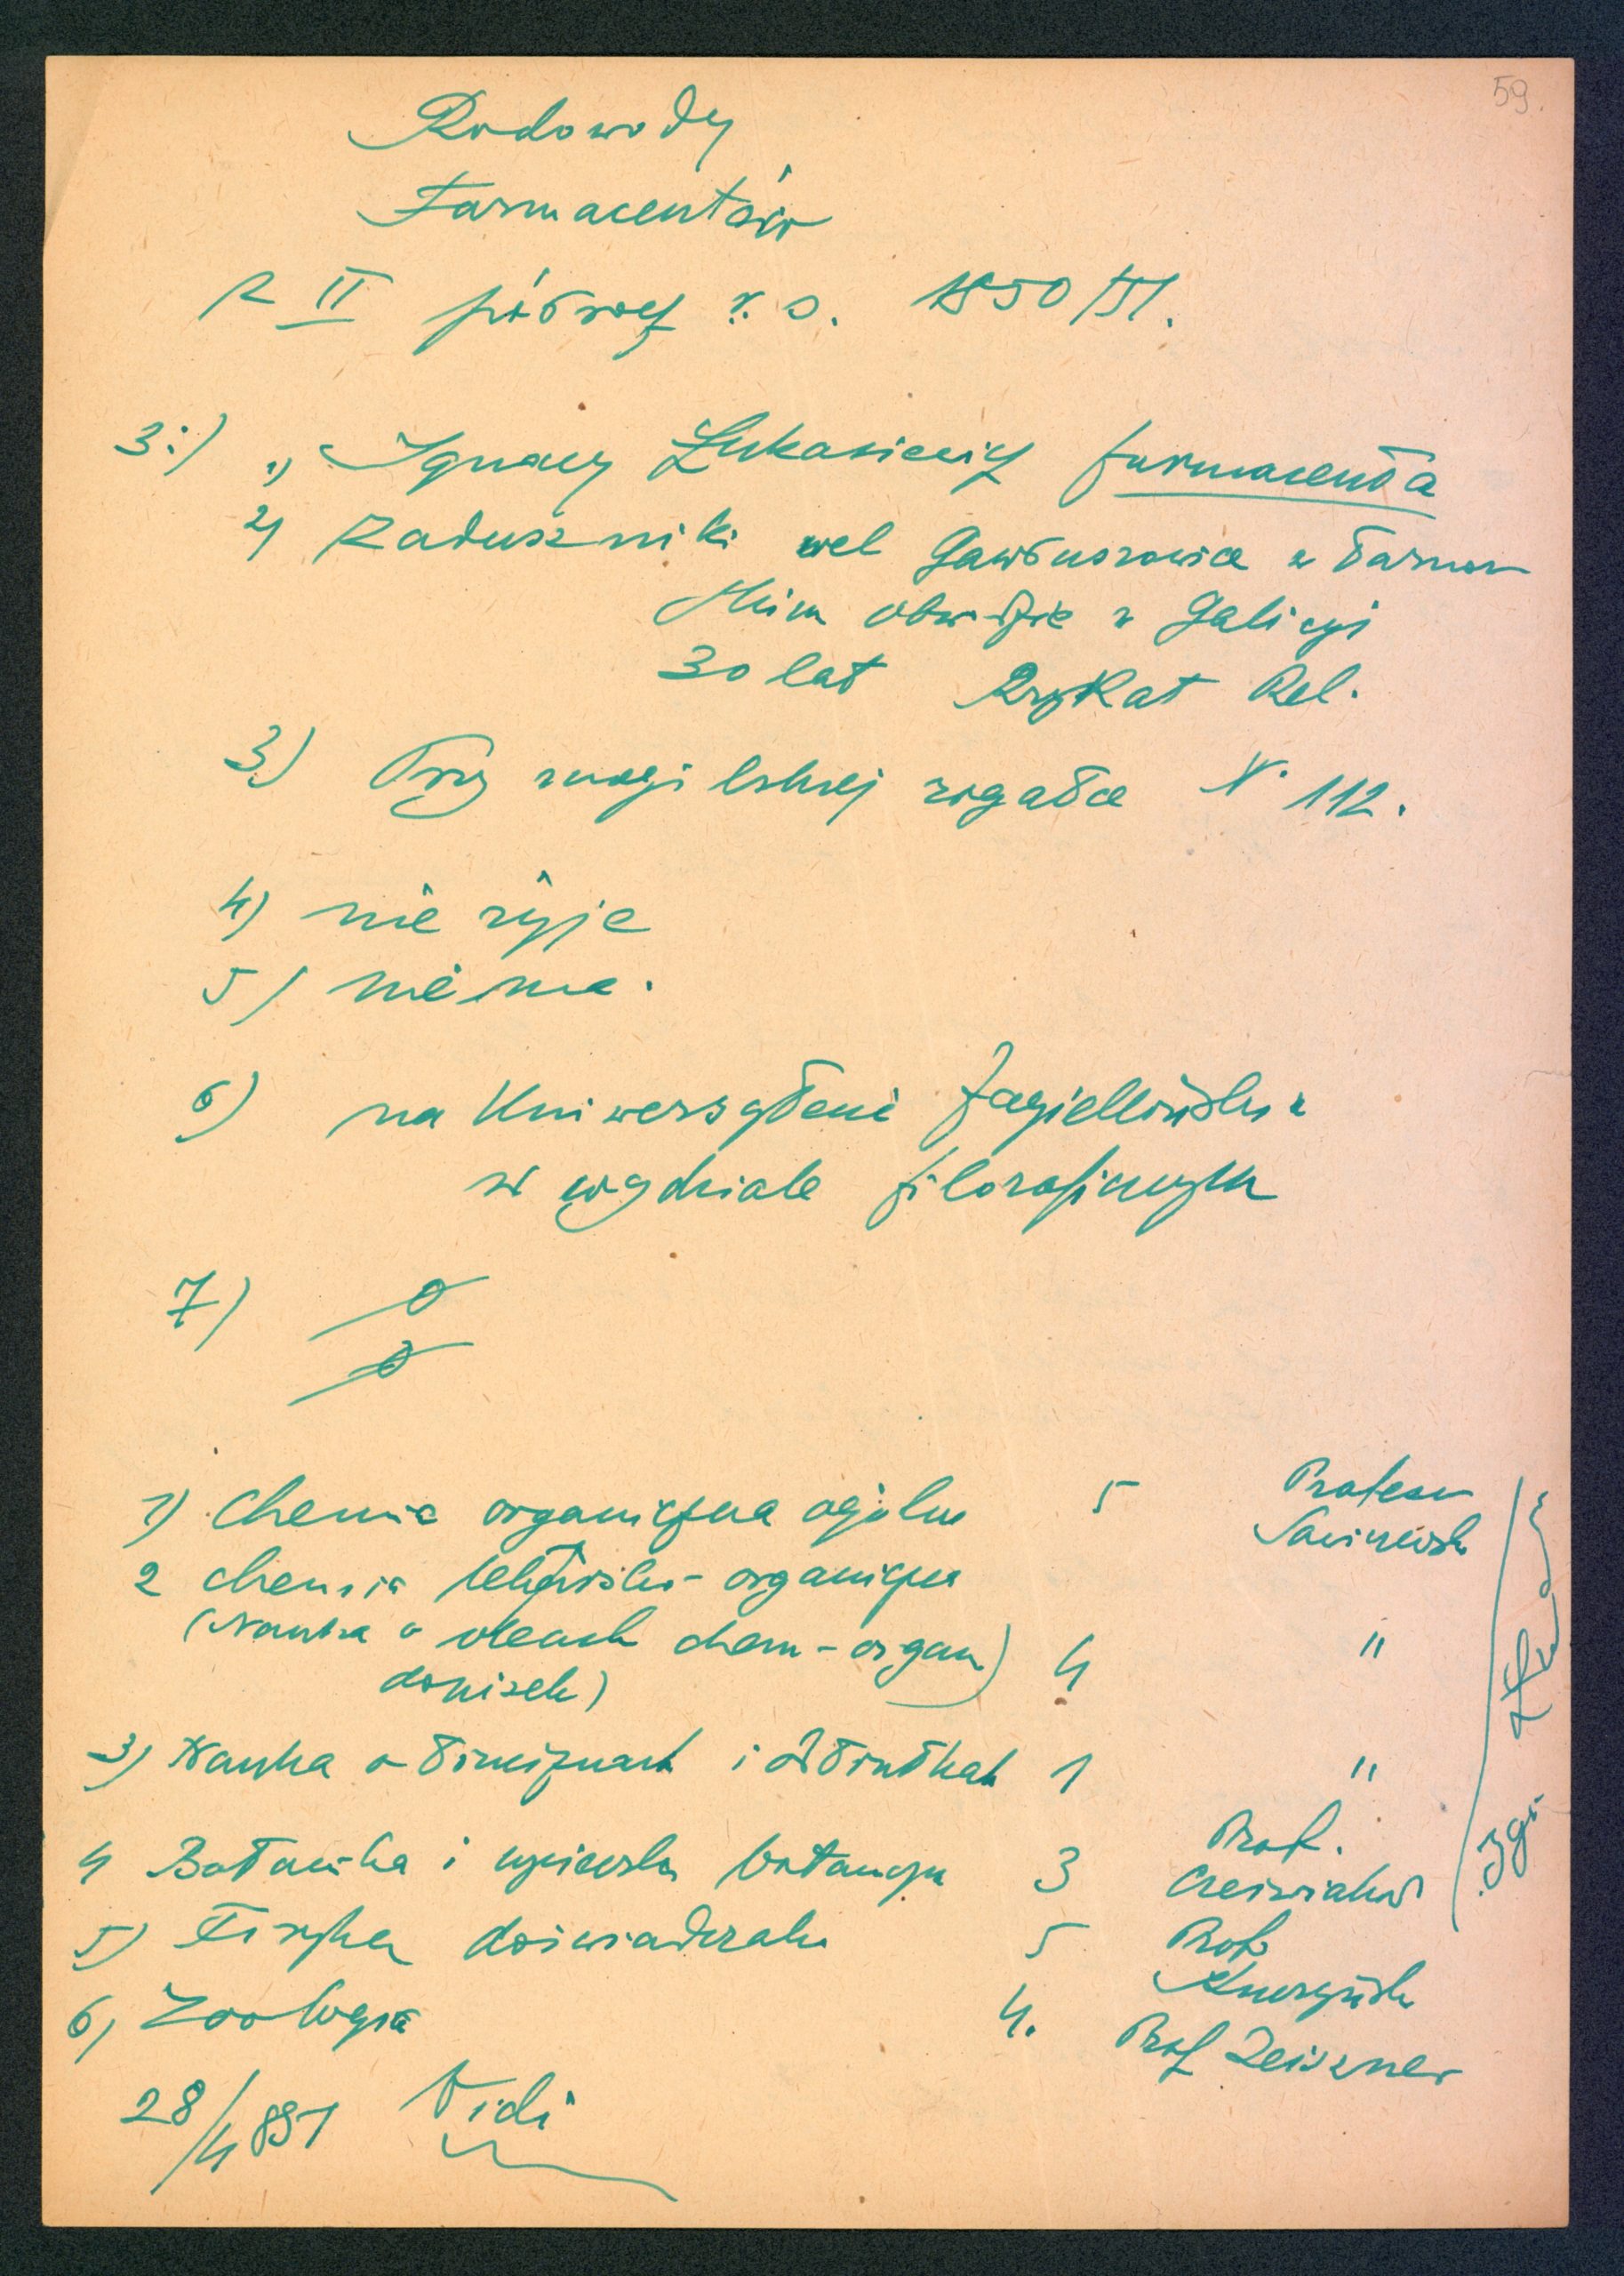 59.
Rodowody
Farmaceutów
z II półrocz r. s. 1850/51.
3:) 1) Ignacy Łukasiewicz farmaceuta
2) Zaduszniki vel Gawłuszowice w Tarnow
skim obwodzie w Galicyi
30 lat Rzykat Rel.
3) Przy mogilskiej rogatce N. 112.
4) nie żyje
5) nie ma.
6) na Uniwersytecie Jagiellońsk
w wydziale filozoficzym
7)
1) Chemia organiczna ogólna 5 Profesor
Sawiczewsk
2 chemia lekarsko-organiczna
(Nauka o lekach chem-organ) 4 "
3) Nauka o truciznach i 1 "
4 Botanika i wycieczk botanczn 3 Prof.
Czerwiakows
5) Fizyka doświadczaln 5 Prof.
Kuczyńsk
6) Zoologia 4. Prof Zeiszner
28/4 851 Vidi
Ign. Łuk